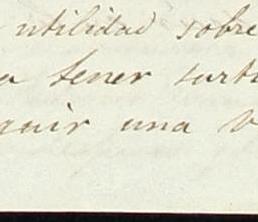 utilidad sobre
a tener surti
quir una v